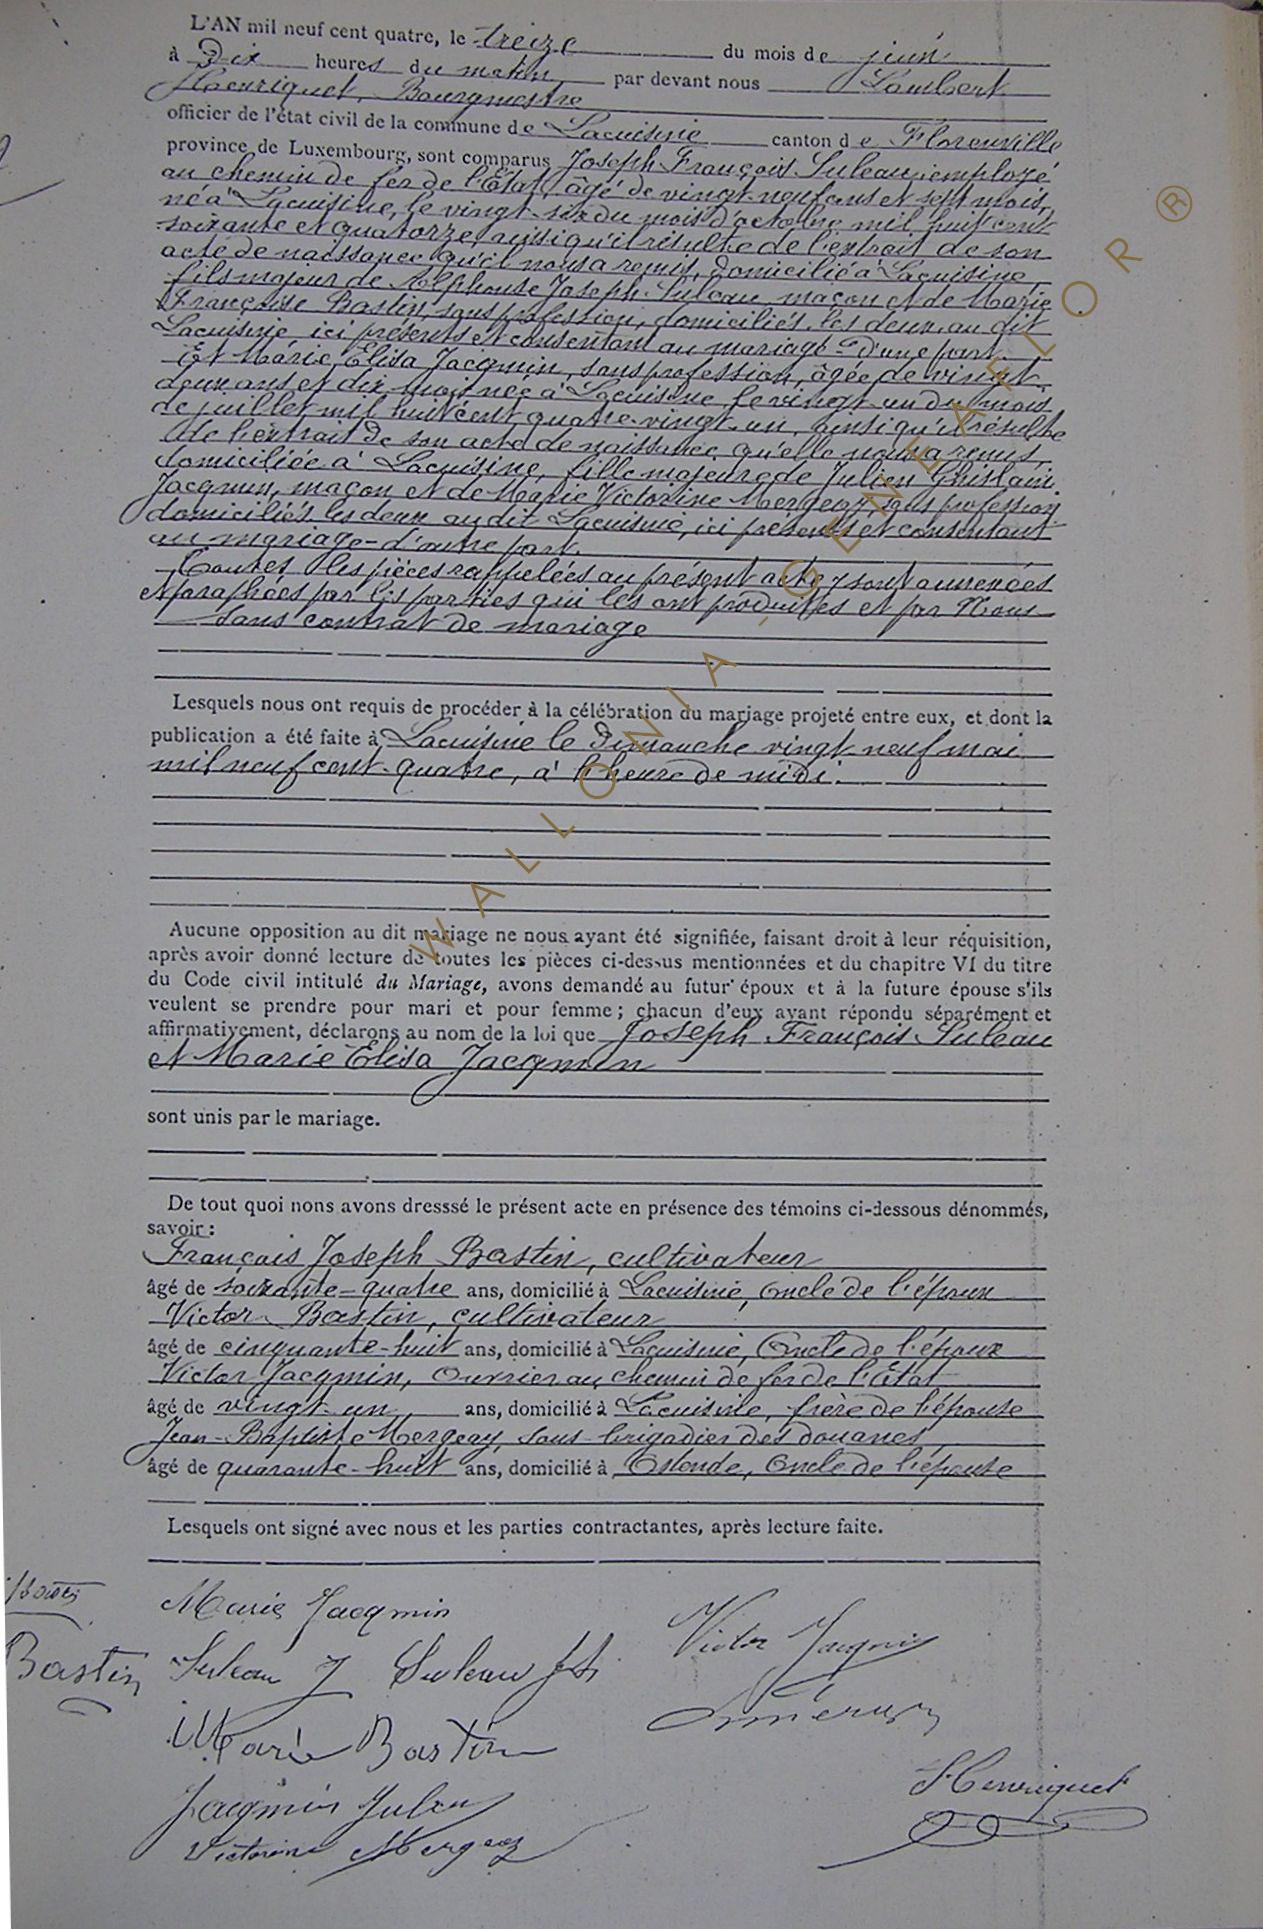 L'AN mil neuf cent quatre, le treize du mois de juin
à Dix heures du matin par devant nous Lambert
Henriquet, Bourgmestre
officier de l'état civil de la commune de Lacuisine canton de Florenville
province de Luxembourg, sont comparus Joseph François Suleau, employé
au chemin de fer de l'Etat, âgé de vingt-neuf ans et sept mois,
né à Lacuisine, le vingt-six du mois d'octobre mil huit cent
soixante et quatorze, ainsi qu'il résulte de l'extrait de son
acte de naissance qu'il nous a remis, domicilié à Lacuisine,
fils majeur de Alphonse Joseph Suleau, maçon et de Marie
Françoise Bastin, sans profession, domiciliés les deux au dit
Lacuisine, ici présents et consentant au mariage - d'une part
Et Marie Elisa Jacqmin, sans profession, âgée de vingt
deux ans et dix mois née à Lacuisine le vingt-un du mois
de juillet mil huit cent quatre-vingt-un, ainsi qu'il résulte
de l'extrait de son acte de naissance qu'elle nous a remis,
domiciliée à Lacuisine, fille majeure de Julien Ghislain
Jacqmin, maçon et de Marie Victorine Mergeay, sans profession
domiciliés les deux au dit Lacuisine, ici présents et consentant
au mariage - d'autre part.
Toutes les pièces rappelées au présent acte y sont annexées
et paraphées par les parties qui les ont produites et par Nous
Sans contrat de mariage
Lesquels nous ont requis de procéder à la célébration du mariage projeté entre eux, et dont la
publication a été faite à Lacuisine le Dimanche vingt-neuf mai
mil neuf cent-quatre, à l'heure de midi.
Aucune opposition au dit mariage ne nous ayant été signifiée, faisant droit à leur réquisition,
après avoir donné lecture de toutes les pièces ci-dessus mentionnées et du chapitre VI du titre
du Code civil intitulé du Mariage, avons demandé au futur époux et à la future épouse s'ils
veulent se prendre pour mari et pour femme ; chacun d'eux ayant répondu séparément et
affirmativement, déclarons au nom de la loi que Joseph François Suleau
et Marie Elisa Jacqmin
sont unis par le mariage.
De tout quoi nons avons dresssé le présent acte en présence des témoins ci-dessous dénommés,
savoir :
François Joseph Bastin, cultivateur
âgé de soixante-quatre ans, domicilié à Lacuisine, oncle de l'époux
Victor Bastin, cultivateur
âgé de cinquante-huit ans, domicilié à Lacuisine, Oncle de l'époux
Victor Jacqmin, Ouvrier au chemin de fer de l'Etat
âgé de vingt-un ans, domicilié à Lacuisine, frère de l'épouse
Jean-Baptiste Mergeay, sous-brigadier des douanes,
âgé de quarante-huit ans, domicilié à Ostende, oncle de l'épouse
Lesquels ont signé avec nous et les parties contractantes, après lecture faite.
Marie Jacqmin
Victor Jacqmin
Bastin
Suleau J
Suleau
Marie Bastin
Henriquet
Jacqmin Julien
Victorine Mergeay
WALLONIA - GENEAFLOR ®